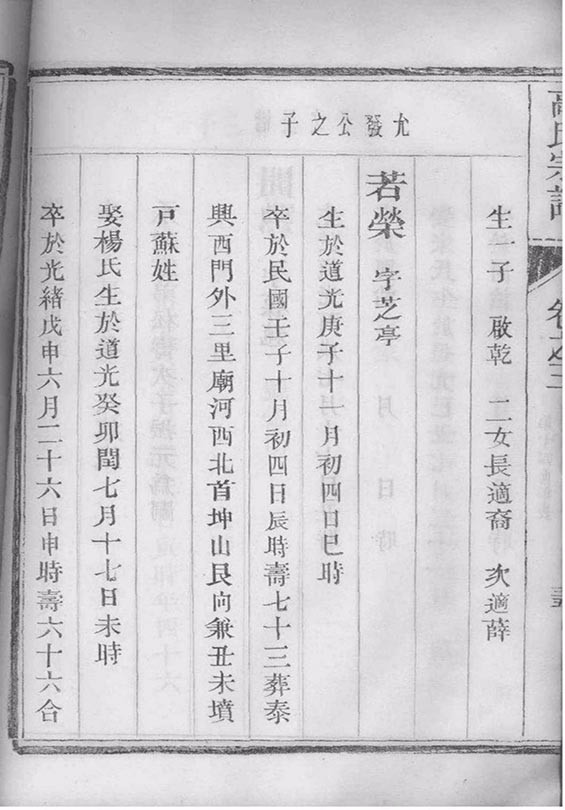 高氏宗譜
卷之三
允發公之子
生一子 啟乾 二女長適裔 次適薛
若榮 字芝亭
生於道光庚子十一月初四日巳時
卒於民國壬子十月初四日辰時壽七十三葬泰
興西門外三里廟河西北首坤山艮向兼丑未墳
戶蘇姓
娶楊氏生於道光癸卯閏七月十七日未時
卒於光緒戊申六月二十六日申時壽六十六合